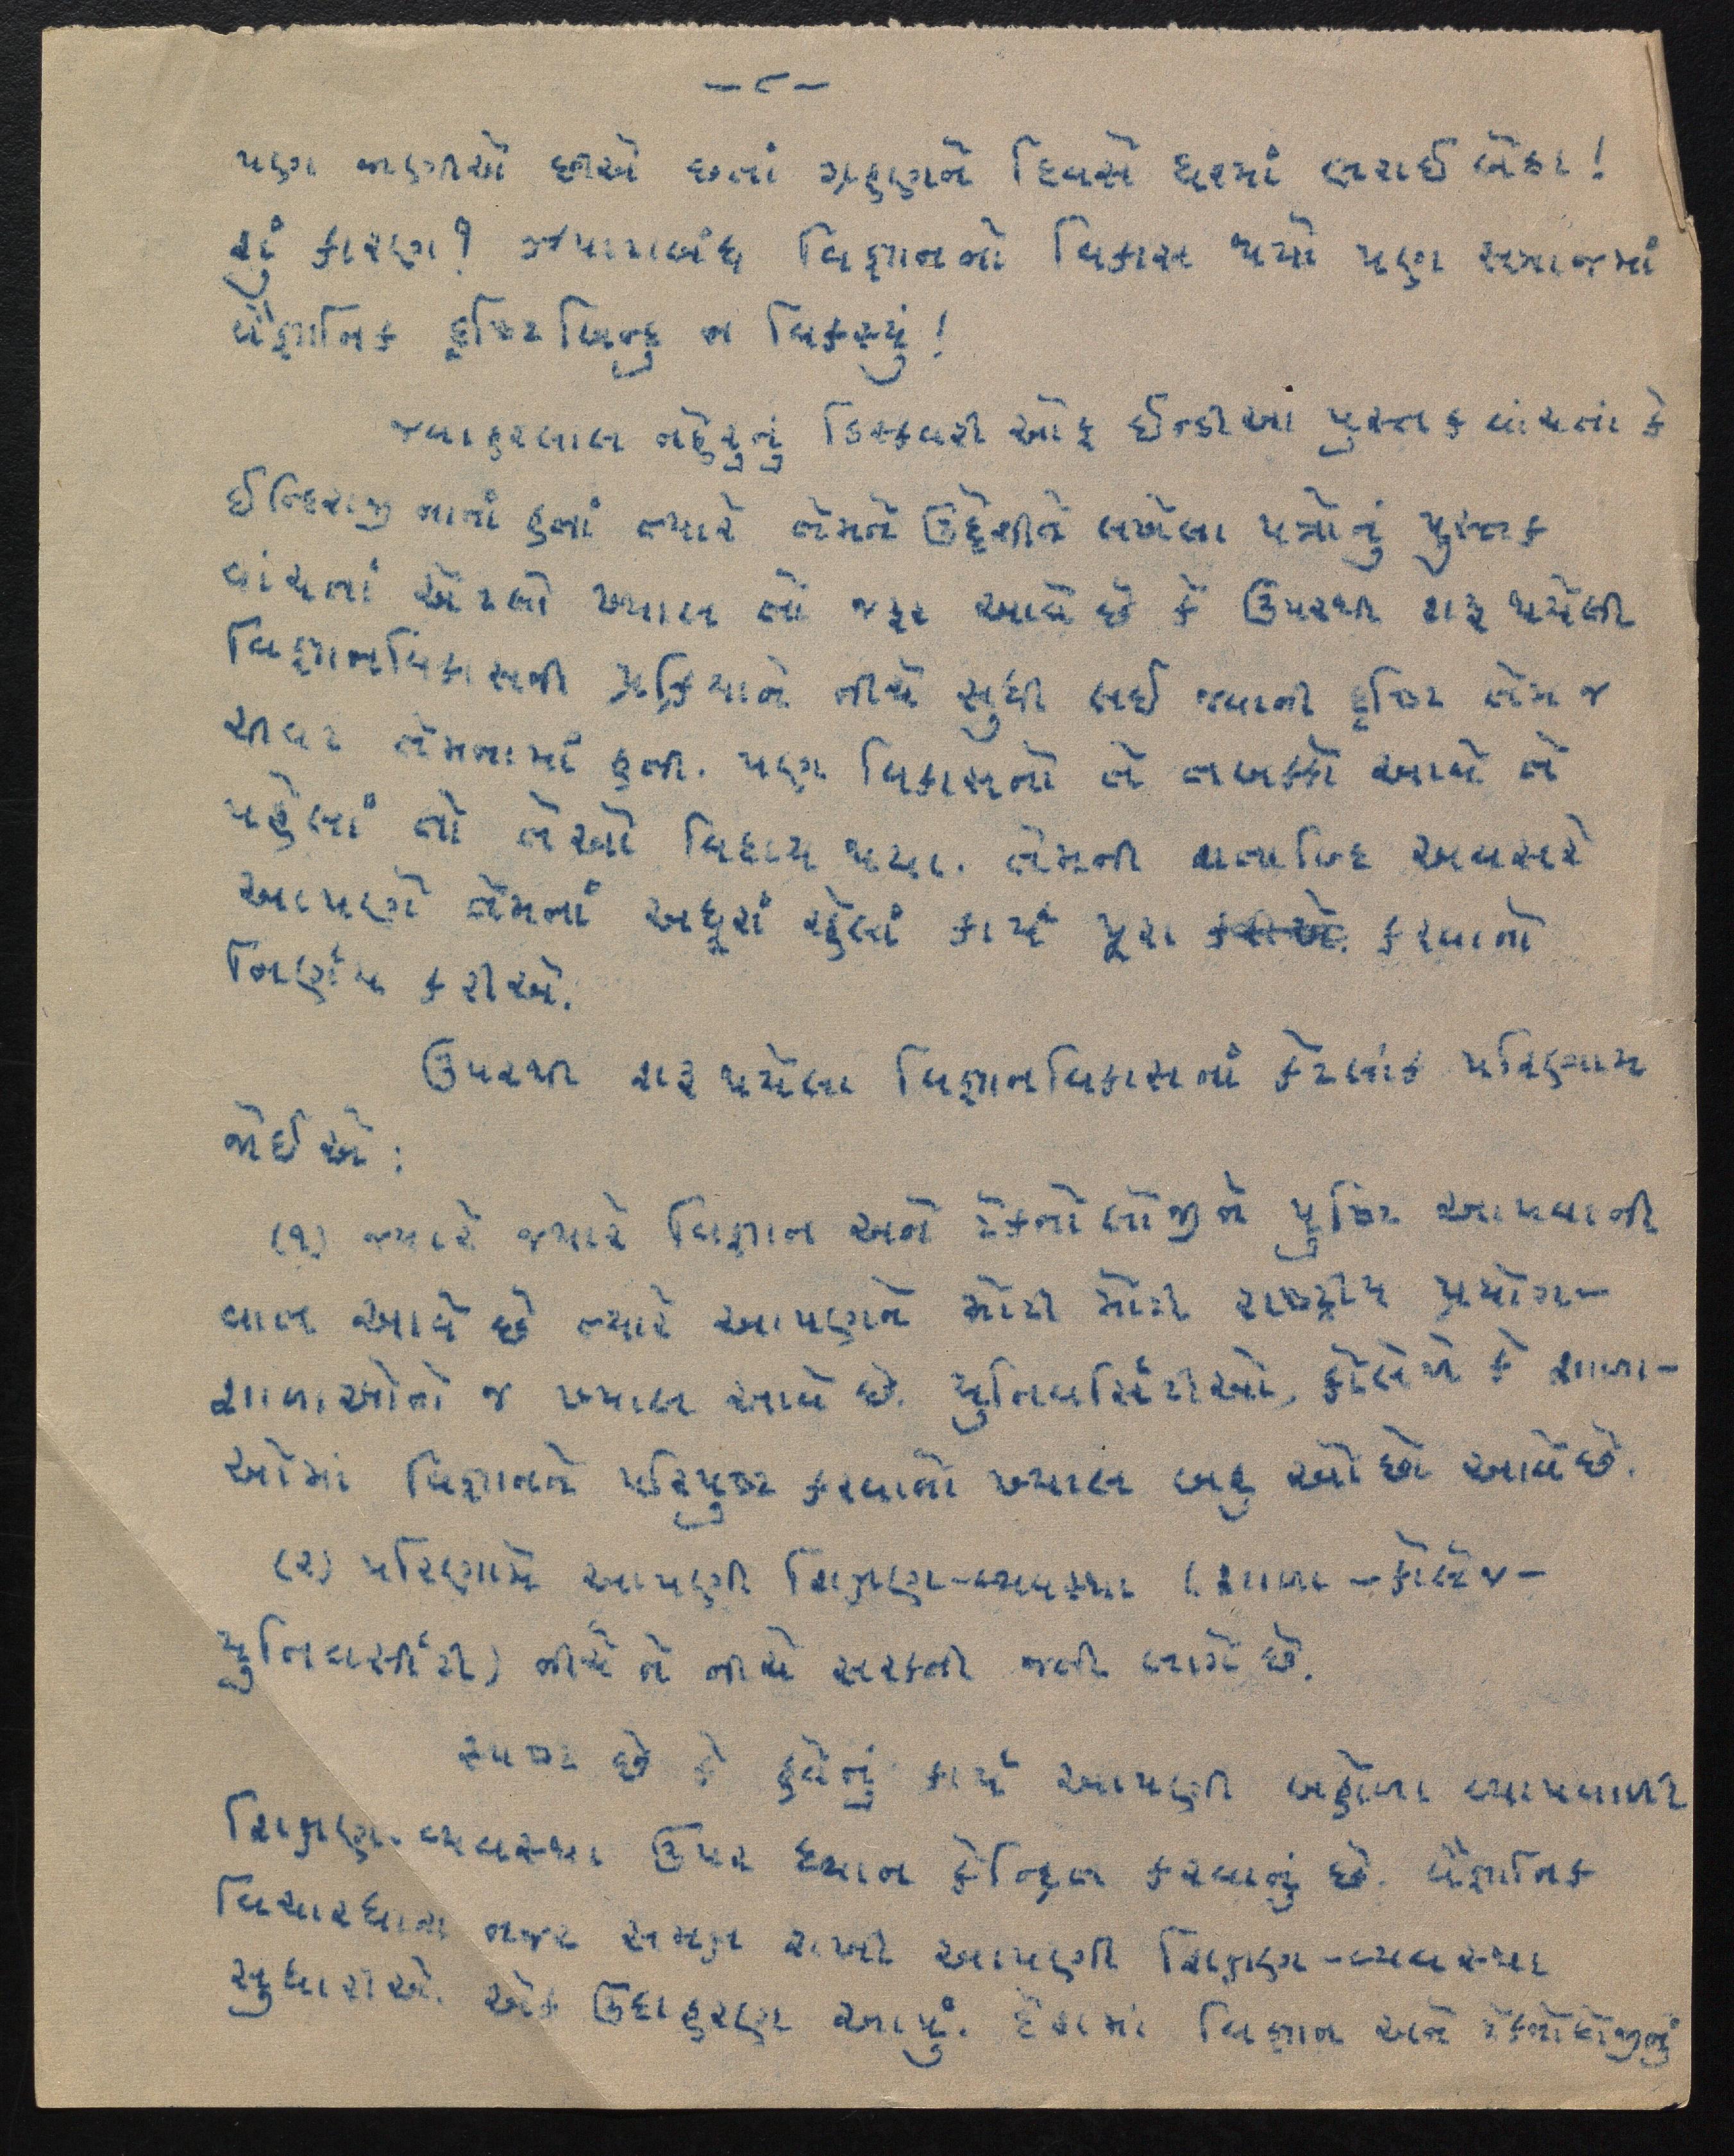 —૮—
પણ જાણીએ છીએ છતાં ગ્રહણને દિવસે ઘરમાં ભરાઈ બેઠા!
શું કારણ? જથ્થાબંધ વિજ્ઞાનનો વિકાસ થયો પણ સમાજમાં
વૈજ્ઞાનિક દૃષ્ટિબિન્દુ ન વિકસ્યું!
જવાહરલાલ નહેરુનું ડિસ્કવરી ઓફ ઈન્ડીઆ પુસ્તક વાંચતાં કે
ઈન્દિરાજી નાનાં હતાં ત્યારે તેમને ઉદ્દેશીને લખેલા પત્રોનું પુસ્તક
વાંચતાં એટલો ખ્યાલ તો જરૂર આવે છે કે ઉપરથી શરૂ થયેલી
વિજ્ઞાનવિકાસની પ્રક્રિયાને નીચે સુધી લઈ જવાની દૃષ્ટિ તેમ જ
શક્તિ તેમનામાં હતી. પણ વિકાસનો તે તબક્કો આવે તે
પહેલાં તો તેઓ વિદાય થયા. તેમની શતાબ્દિ અવસરે
આપણે તેમનાં અધૂરાં રહેલાં કાર્ય પૂરા કરવાનો
નિર્ણય કરીએ.
ઉપરથી શરૂ થયેલા વિજ્ઞાનવિકાસનાં કેટલાંક પરિણામ
જોઈએ:
(૧) જ્યારે જ્યારે વિજ્ઞાન અને ટેકનોલોજીને પુષ્ટિ આપવાની
વાત આવે છે ત્યારે આપણને મોટી મોટી રાષ્ટ્રીય પ્રયોગ-
શાળાઓનો જ ખ્યાલ આવે છે. યુનિવર્સિટીઓ, કોલેજો કે શાળા-
ઓમાં વિજ્ઞાનને પરિપુષ્ટ કરવાનો ખ્યાલ બહુ ઓછો આવે છે.
(૨) પરિણામે આપણી શિક્ષણ-વ્યવસ્થા (શાળા-કોલેજ-
યુનિવર્સીટી) નીચે ને નીચે સરકતી જતી લાગે છે.
સ્પષ્ટ છે કે હવેનું કાર્ય આપણી બહોળા વ્યાપવાળી
શિક્ષણ-વ્યવસ્થા ઉપર ધ્યાન કેન્દ્રિત કરવાનું છે. વૈજ્ઞાનિક
વિચારધારા નજર સમક્ષ રાખી આપણી શિક્ષણ-વ્યવસ્થા
સુધારીએ. એક ઉદાહરણ આપું. દેશમાં વિજ્ઞાન અને ટેકનોલોજીનું